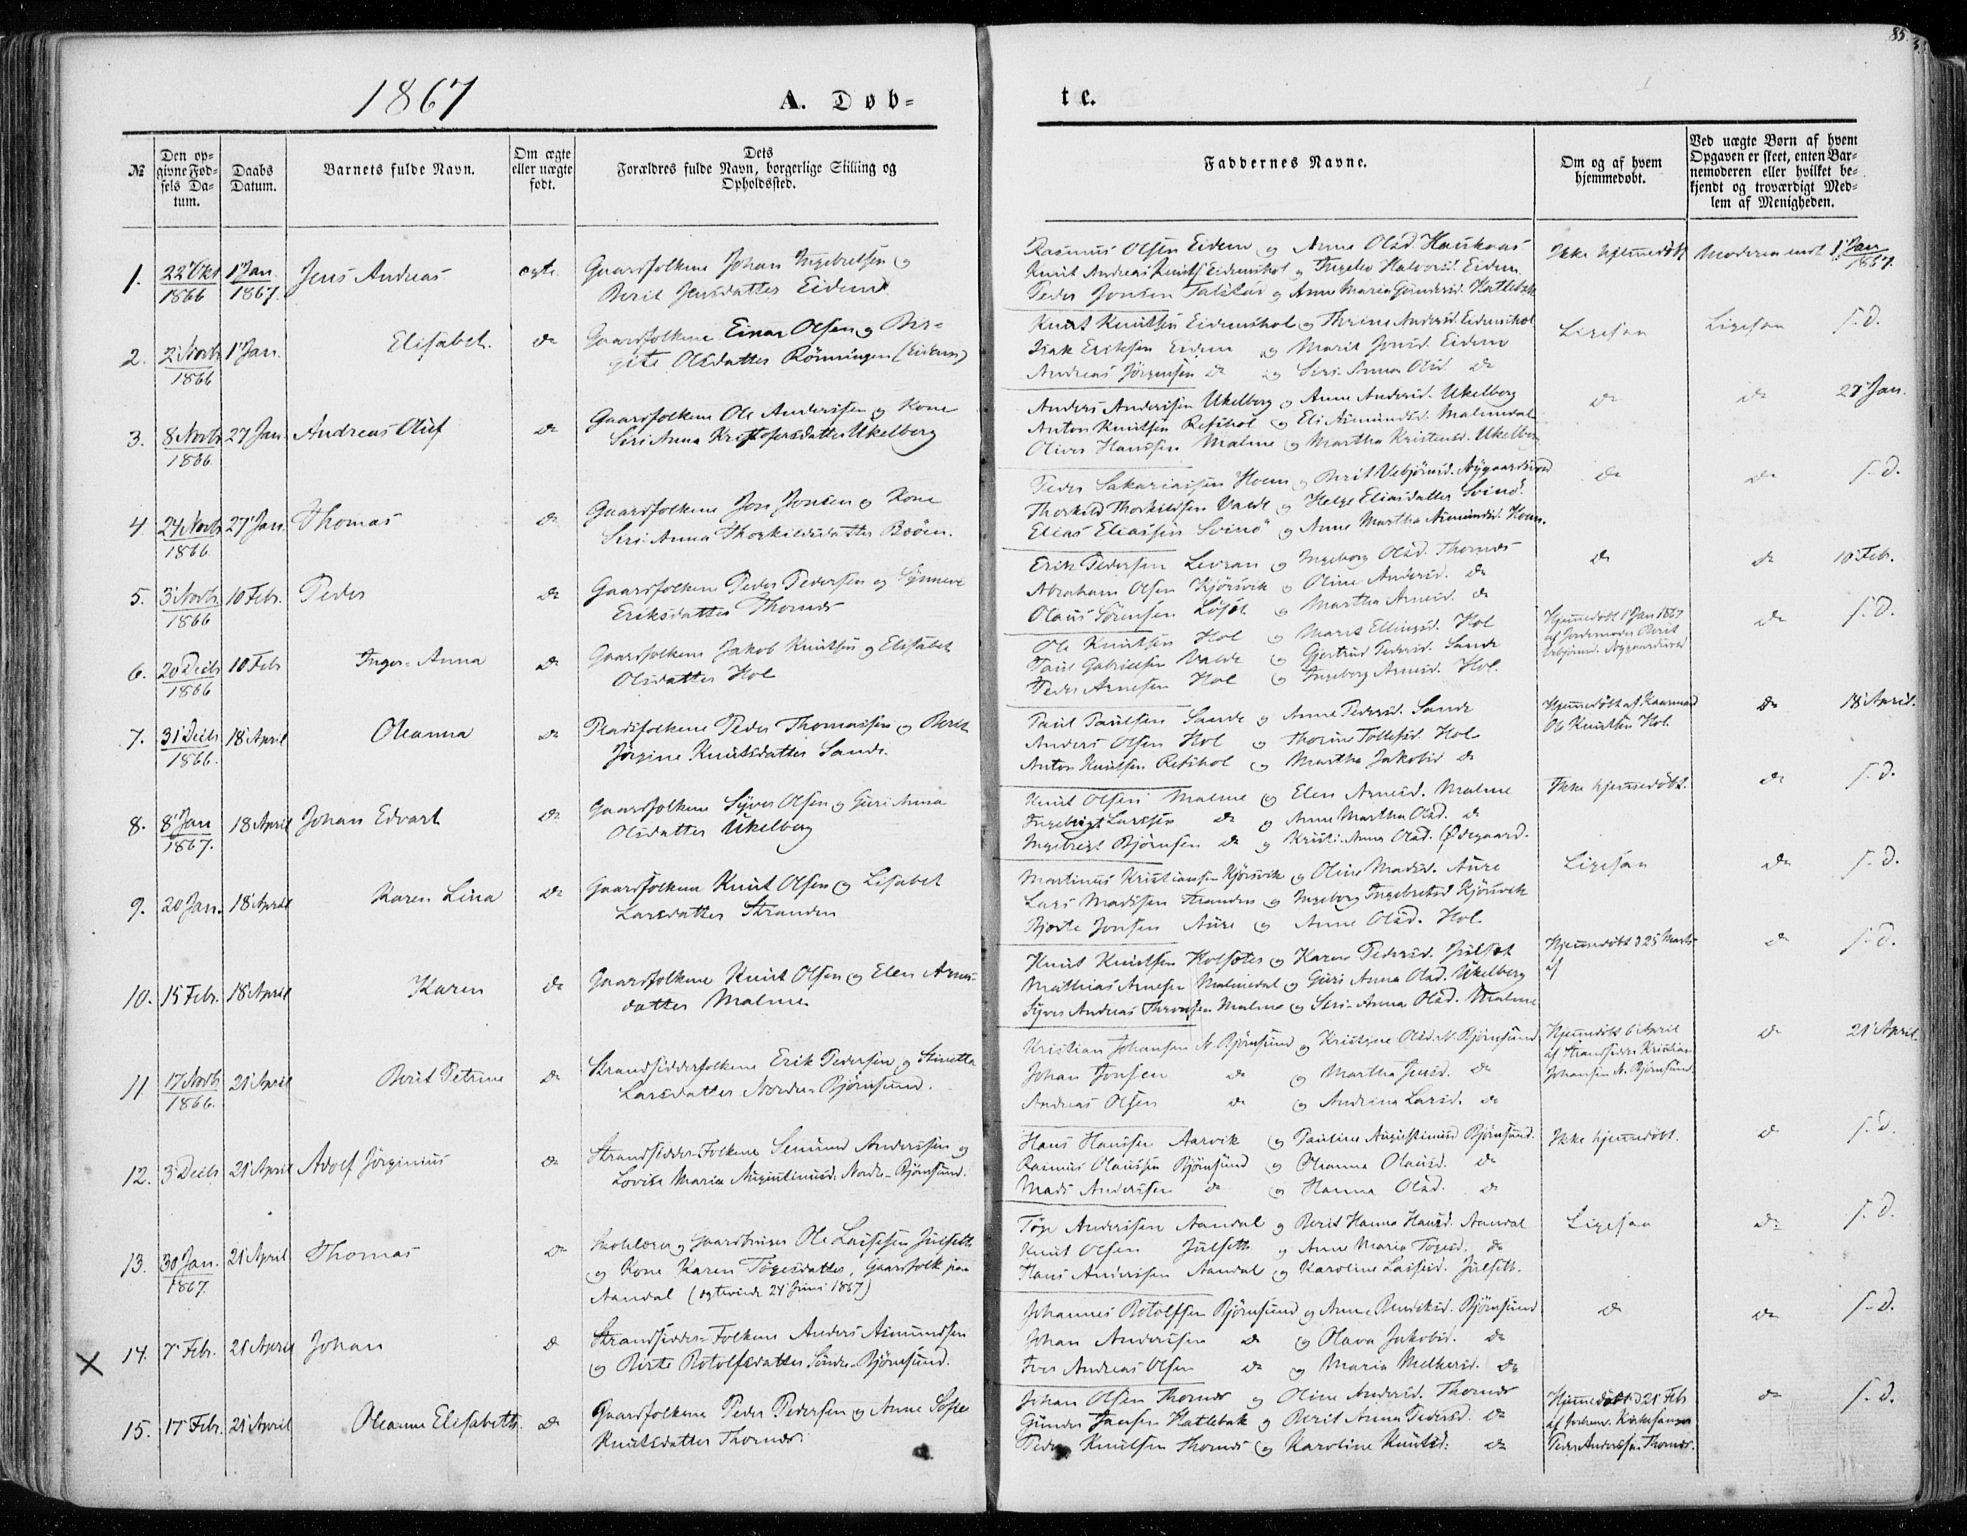 85.
1867 A. Døb= te.
№ | Den opgivne Fødsels Datum. | Daabs Datum. | Barnets fulde Navn. | Om ægte eller uægte født. | Dets Forældres fulde Navn, borgerlige Stilling og Opholdssted. | Faddernes Navne. | Om og af hvem hjemmedøbt. | Ved uægte Børn af hvem Opgaven er skeet, enten Barnemoderen eller hvilket bekjendt og troværdigt Medlem af Menigheden.
1. 22 Okt 1866 | 1 Jan. 1867. | Jens Andreas | ægte | Gaardfolkene Johan Ingebretsen og
Berit Jensdatter Eidem
Rasmus Olsen Eidem og Anne Olsd. Hauknæs
Knut Andreas Knuts. Eidemshol og Ingelev Halvorsd. Eidem
Peder Jonsen Talstad og Anne Maria Gundersd. Hatlebak
Ikke hjemmedøbt | Moderen indt 1 Jan 1867.
2. 2 Novbr 1866 | 1 Jan. | Elisabet | do | Gaardfolkene Einar Olsen og Ber-
gite Olsdatter Rönningen (Eidem)
Knut Knutsen Eidemshol og Thrine Andersd. Eidemshol
Isak Eriksen Eidem og Marit Jonsd. Eidem
Andreas Jörgensen do og Seri Anna Olsd. do
Ligesaa | Ligesaa | s. d.
3. 8 Novbr 1866 | 27 Jan. | Andreas Oluf | do | Gaardfolkene Ole Andersen og Kone
Seri Anna Kristofersdatter Ukelberg
Anders Andersen Ukelberg og Anne Andersd. Ukelberg
Anton Knutsen Refshol og Eli Asmundsd. Malmedal
Oliver Hansen Malme og Martha Kristensd. Ukelberg
do | do | 27 Jan.
4. 24 Novbr 1866 | 27 Jan. | Thomas | do | Gaardfolkene Jon Jonsen og Kone
Seri Anna Thorkildsdatter Bööen.
Peder Sakariassen Hoem og Berit Vebjörnsd. Nygaardsvord
Thorkild Thorkildsen Valde og Helge Eliasdatter Svinö
Elias Eliassen Svinö og Anne Martha Asmundsd. Hoem.
do | do | s. d.
5. 3 Novbr 1866 | 10 Feb. | Peder | do | Gaardfolkene Peder Pedersen og Synneve
Eriksdatter Thornes
Erik Pedersen Levran og Ingeborg Olsd. Thornes
Abraham Olsen Kjörsvik og Oline Andersd. do
Olaus Sörensen Löset og Martha Arnesd. do
do | do | 10 Feb.
6. 20 Decbr 1866 | 10 Feb | Inger-Anna | do | Gaardfolkene Jakob Knutsen og Elisabet
Olsdatter Hol
Ole Knutsen Hol og Marit Ellingsd. Hol
Paul Gabrielsen Valde og Gjertrud Pedersd. Sande
Peder Arnesen Hol og Ingeborg Arnesd. Hol.
Hjemmedöbt 1 Jan 1867
af Jordemoder Berit
Vebjörnsd. Nygaardsvord | do | s. d.
7. 31 Decbr 1866. | 18 April | Oleanna | do | Pladsfolkene Peder Thomassen og Berit
Jörgine Knutsdatter Sande.
Paul Paulsen Sande og Anne Pedersd. Sande
Anders Olsen Hol og Thorine Tollefsd. Hol
Anton Knutsen Refshol og Martha Jakobsd do
Hjemmedöbt af Gaardmand
Ole Knutsen Hol. | do | 18 April.
8. 8 Jan 1867. | 18 April | Johan Edvart | do | Gaardfolkene Syver Olsen og Guri Anna
Olsdatter Ukelberg
Knut Olsen Malme og Elen Arnesd. Malme
Ingebrigt Larssen do og Anne Martha Olsd. do
Ingebrigt Björnsen do og Kristi Anna Olsd. Ödegaard.
Ikke hjemmedöbt. | do | s. d.
9. 20 Jan. | 18 April | Karen Lina | do | Gaardfolkene Knut Olsen og Lisabet
Larsdatter Stranden
Martinus Kristiansen Kjörsvik og Oline Madsd. Aure
Lars Madssen Stranden og Ingeborg Ingebretsd Kjörsvik
Bjerte Jonsen Aure og Anne Olsd. Hol
Ligesaa | do | s. d.
10. 15 Febr. | 18 April | Karen | do | Gaardfolkene Knut Olsen og Elen Arnes-
datter Malme.
Knut Knutsen Holsæter og Karen Pedersd. Julset
Mathias Arnesen Malmedal og Guri Anna Olsd. Ukelberg
Syver Andreas Thronsen Malme og Seri-Anna Olsd. Malme
Hjemmedöbt d 25 Marts
af | do | s. d.
11. 17 Novb 1866. | 21 April | Berit Petrine | do | Strandsidderfolkene Erik Pedersen og Stinetta
Larsdatter Nordre Björnsund.
Kristian Johansen N. Björnsund og Kristine Olsd. N. Björnsund
Johan Jonsen do og Martha Jensd. do
Andreas Olsen do og Andrina Larsd. do
Hjemmedöbt 6 April
af Strandsidder Kristian
Johansen N. Björnsund. | do | 21 April.
12. 3 Decbr | 21 April | Adolf Jörginius | do | Strandsidder-Folkene Semund Anderssen og
Lovise Maria Augustinusd. Nordre-Björnsund.
Hans Hanssen Aarvik og Pauline Augustinusd Björnsund.
Rasmus Olaussen Björnsund og Oleanna Olausd. do
Mads Anderssen do og Hanna Olsd. do
Ikke hjemmedöbt. | do | s. d.
13. 30 Jan. 1867. | 21 April | Thomas | do | Skolelærer og Gaardbruger Ole Lassesen Julseth
og Kone Karen Tögesdatter, Gaardfolk paa
Aandal (ægteviede 24 Juni 1867)
Töge Anderssen Aandal og Berit Hanna Hansd. Aandal
Knut Olsen Julseth og Anne Maria Tögesd. do
Hans Anderssen Aandal og Karoline Lassesd. Julseth.
Ligesaa | do | s. d.
X 14. 7 Feb. | 21 April | Johan | do | Strandsidder-Folkene Anders Asmundsen
og Birte Rotolfsdatter Söndre-Björnsund.
Johannes Rotolfsen Björnsund og Anne Bendiksd. Björnsund
Johan Anderssen do og Olava Jakobsd. do
Iver Andreas Olsen do og Maria Melkersd. do
do | do | s. d.
15. 17 Febr. | 21 April | Oleanne Elisabeth | do | Gaardfolkene Peder Pedersen og Anne Sofie
Knutsdatter Thornes.
Johan Olsen Thornes og Oline Andersd. Thornes
Gunder Jansen Hatlebak og Berit Anna Pedersd. do
Peder Knutsen Thornes og Karoline Knutsd. do
Hjemmedöbt d 21 Feb
af forhenv. Kirkesanger
Peder Anderssen Thornes. | do | s. d.